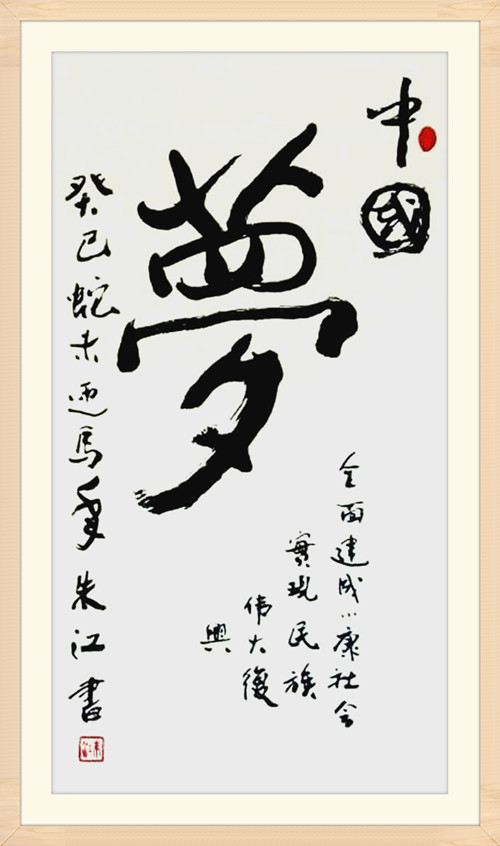 中國
夢
全面建成小康社会
實現民族
伟大復
興
癸巳蛇末迎馬年朱江書